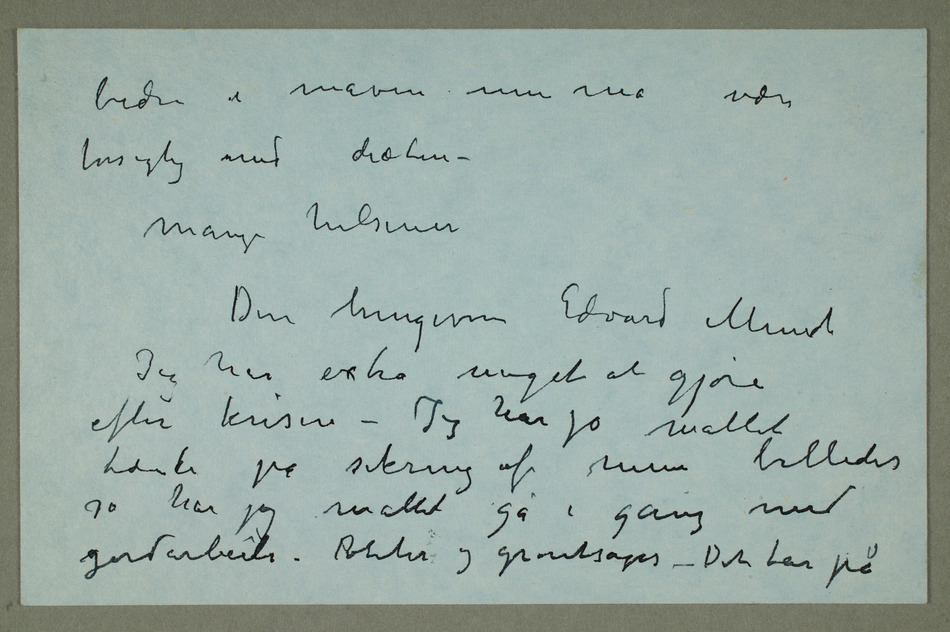 bedre i maven men må være
forsigtig med diæten –
Mange hilsener
Din hengivne Edvard Munch
Jeg har extra meget at gjøre
efter krisen – Jeg har jo måttet
tænke på sikring af mine billeder
så har jeg måttet gå i gang med
gårdarbeide. Poteter og grøntsager – Det tar på